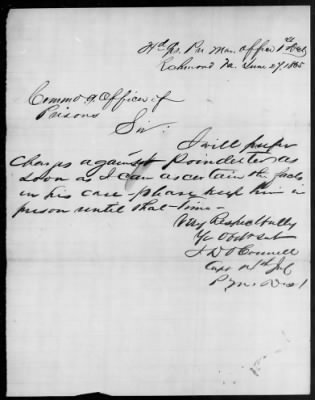 Hd Qrs. Pro. Mar. office 1st Dist
Richmond Va. June 27, 1865
Commdg. Officer of
Prisons
Sir:
I will prefer
charges against Poindexter as
soon as I can ascertain the facts
in his case please keep him in
prison until that time—
Very Respectfully
Yr Obdt Svt
O'Connell
Capt